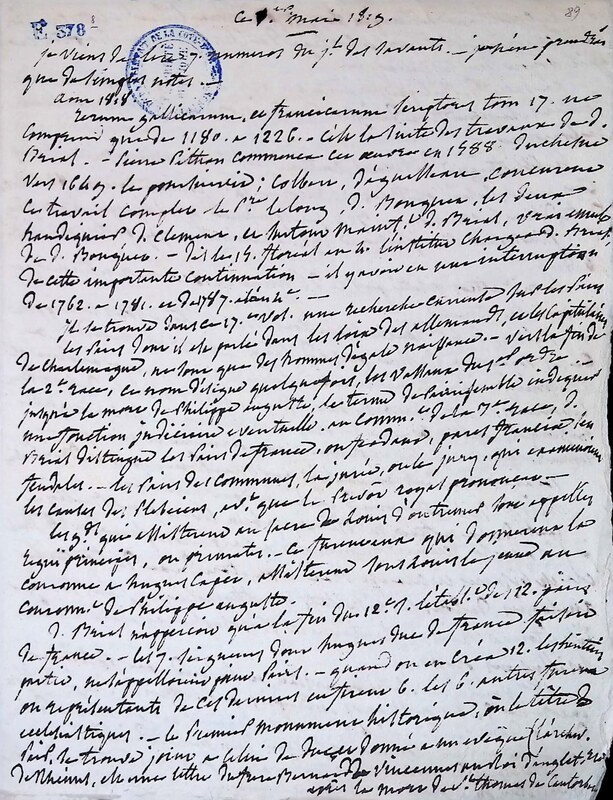 E. 378 8
89
ce 1er mars 1819.
je viens de lire 7. numeros du jal des savants. – j'espère prendre
que de simples notes. –
aout 1818
rerum gallicarum, et francicarum scriptores tom 17. ne
comprend que de 1180. a 1226. – c'est la suite des travaux de d.
Brial. – Pierre Pithou commença ces œuvres en 1588. Duchesne
vers 1640. le poursuivit; Colbert, Daguesseau, concourent
ce travail complet le Pere Lelong, d. Bouquet, les deux
haudiquier d. Clement, et surtout maint. d. Brial, vrai emule
de d. Bouquet. – dès le 15. floreal an 4. l'institut chargea d. Brial
de cette importante continuation – il y avoit eu une interruption
de 1762. a 1781. et de 1787.
Il se trouve dans ce 17e vol. une recherche curieuse sur les Pairs
les Pairs dont il est parlé dans les loix des allemands, et les capitulaires
de Charlemagne, ne sont que des hommes d'égale naissance. – vers la fin de
la 2e race, ce nom désigne quelquefois, les vassaux du
jusqu'à la mort de Philippe auguste, le terme de Pairie semble indiquer
une fonction judiciaire eventuelle. au commt de la 3e race, d.
Brial distingue les Pairs de france, ou feodaux, pares franciae, les
feodales. – les Pairs des communes, la jurée, ou le jury, qui examinoient
les causes des Plebeiens, av. que le Prévôt royal prononçat. –
les gds qui assisterent au sacre de Louis d'outremer sont appellés
regni principes, ou primates. – ce furent eux qui donnerent la
couronne a hugues Capet, assisterent sous Louis le jeune au
couronnt de Philippe auguste.
d. Brial n'apperçoit qu'a la fin du 12e s. l'établt des 12. pairs
de france. – les 7. seigneurs dont hugues Duc de france faisoit
partie, ne s'appelloient point Pairs. – quand on en créa 12. les héritiers
ou représentants de ces derniers en furent 6. les 6. autres furent
ecclesiastiques. – le premier monument historique, où le titre de
Pair, se trouve joint a celui de Duc et donné a un evêque (l'archev.
de Rheims, est une lettre du frere Bernard de Vincennes au roi d'anglet.
après la mort de St thomas de Cantorb.